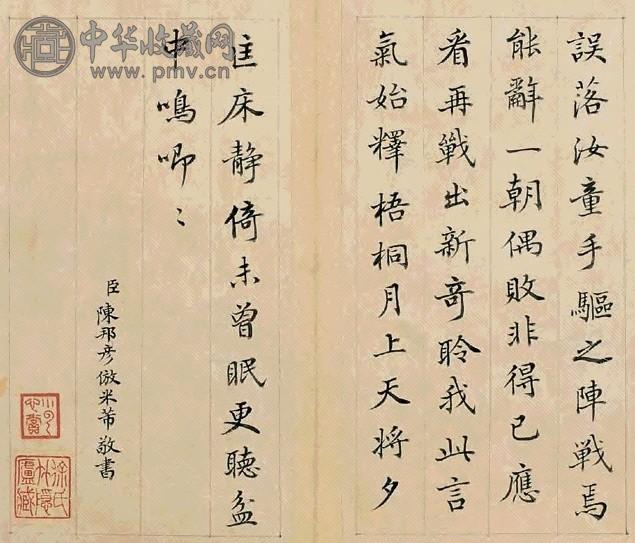 誤落汝童手驅之陣戰焉
能辭一朝偶敗非得已應
看再戰出新奇聆我此言
氣始釋梧桐月上天將夕
匡床静倚未曾眠更聽盆
中鳴唧〻
臣陳邦彦倣米芾敬書
徐氏
中华收藏网
www.pmv.cn